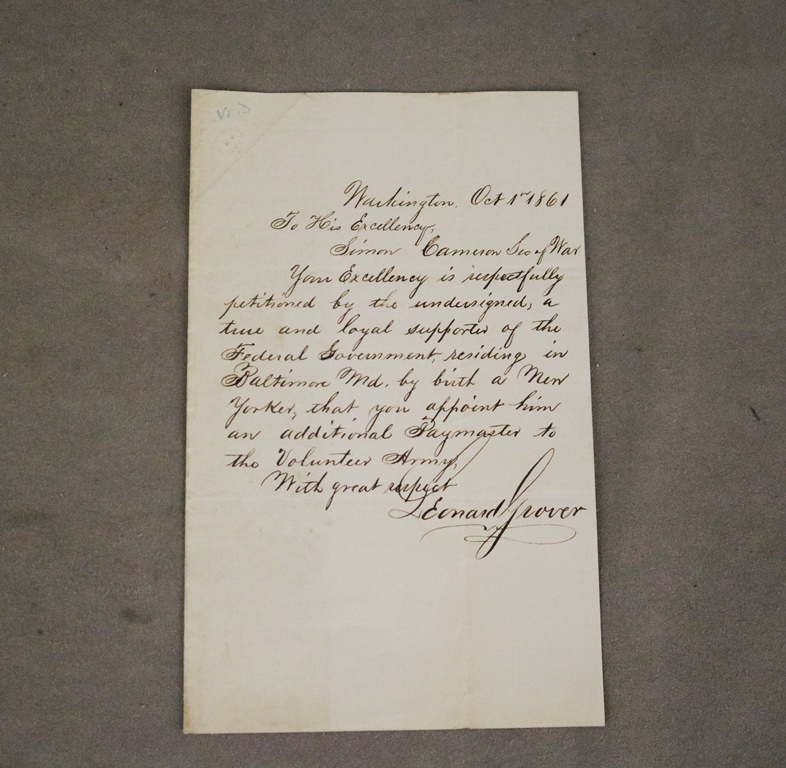 Washington, Oct 1st 1861
To His Excellency,
Simon Cameron Sec of War
Your Excellency is respectfully
petitioned by the undersigned, a
true and loyal supporter of the
Federal Government, residing in
Baltimore Md. by birth a New
Yorker, that you appoint him
an additional Paymaster to
the Volunteer Army,
With great respect
Leonard Grover